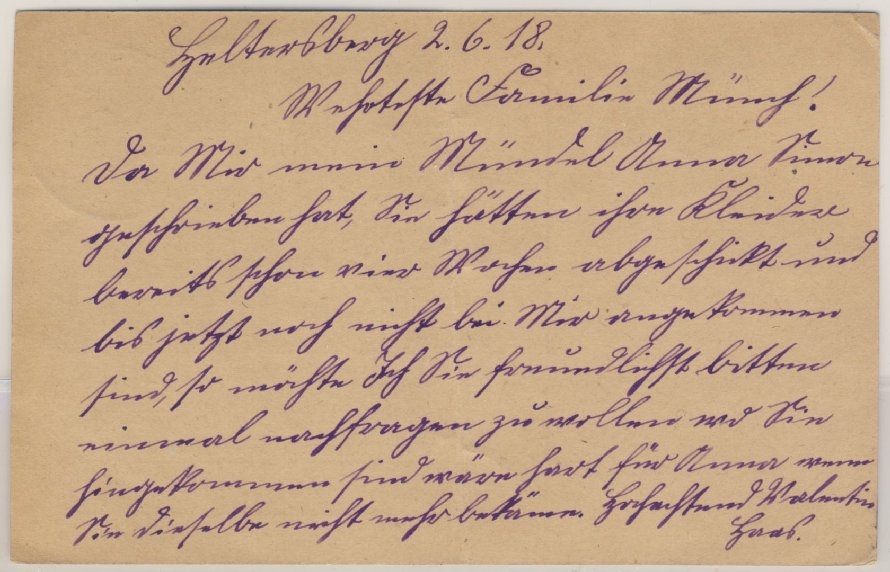 Heltersberg 2.6.18.
Wehrteste Familie Münch!
Da Mir mein Mündel Anna Simon
geschrieben hat, Sie hätten ihre Kleider
bereits schon vier Wochen abgeschickt und
bis jetzt noch nicht bei Mir angekommen
sind, so möchte Ich Sie freundlichst bitten
einmal nachfragen zu wollen wo Sie
hingekommen sind wäre hart für Anna wenn
Sie dieselbe nicht mehr bekäme. Hochachtend Valentin
Haas.